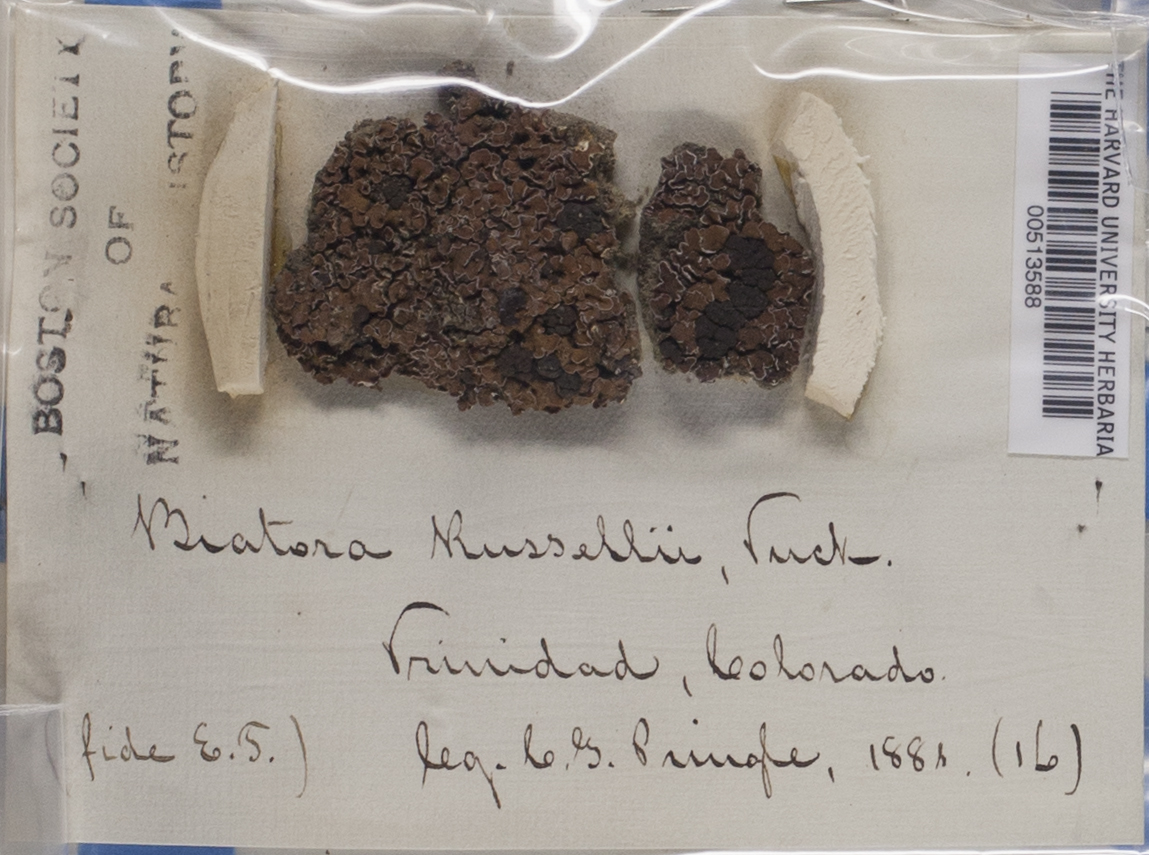 BOSTON SOCIETY
OF
NATURA ISTORY
THE HARVARD UNIVERSITY HERBARIA
00513588
Biatora Russellii, Tuck.
Trinidad, Colorado.
fide E.T.) leg. C.G. Pringle, 1881. (16)